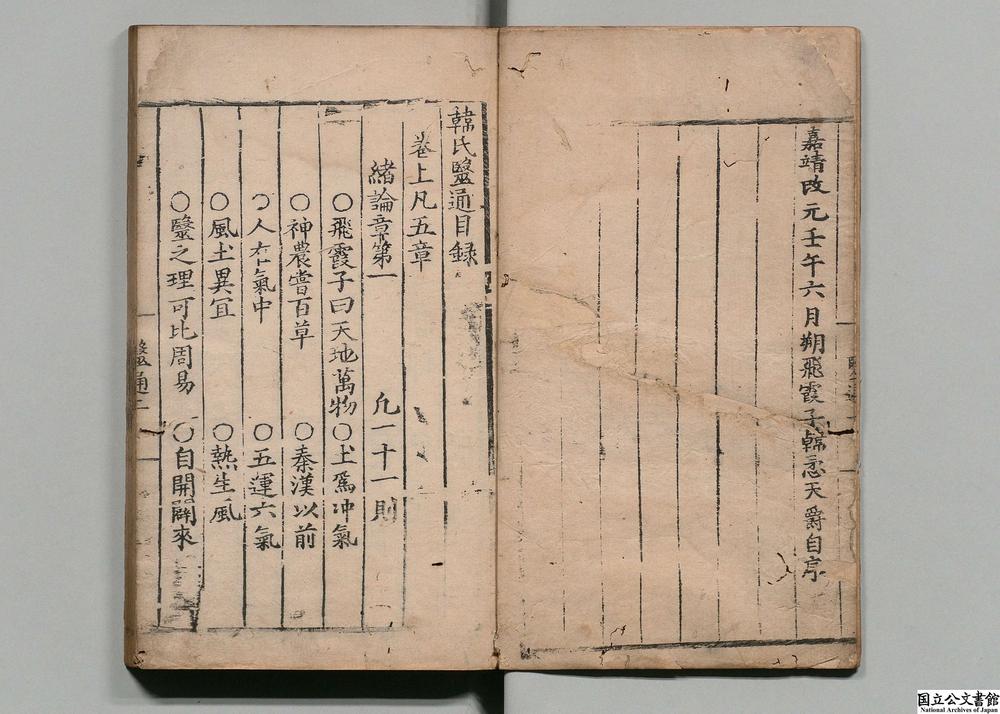 嘉靖改元壬午六月朔飛霞子韓𢘅天爵自序
韓氏醫通目録
卷上凡五章
緒論章第一 凢一十一則
○飛霞子曰天地萬物○上爲冲氣
○神農嘗百草 ○秦漢以前
○人在氣中 ○五運六氣
○風土異宜 ○熱生風
○醫之理可比周易 ○自開闢來
醫通二
国立公文書館
National Archives of Japan